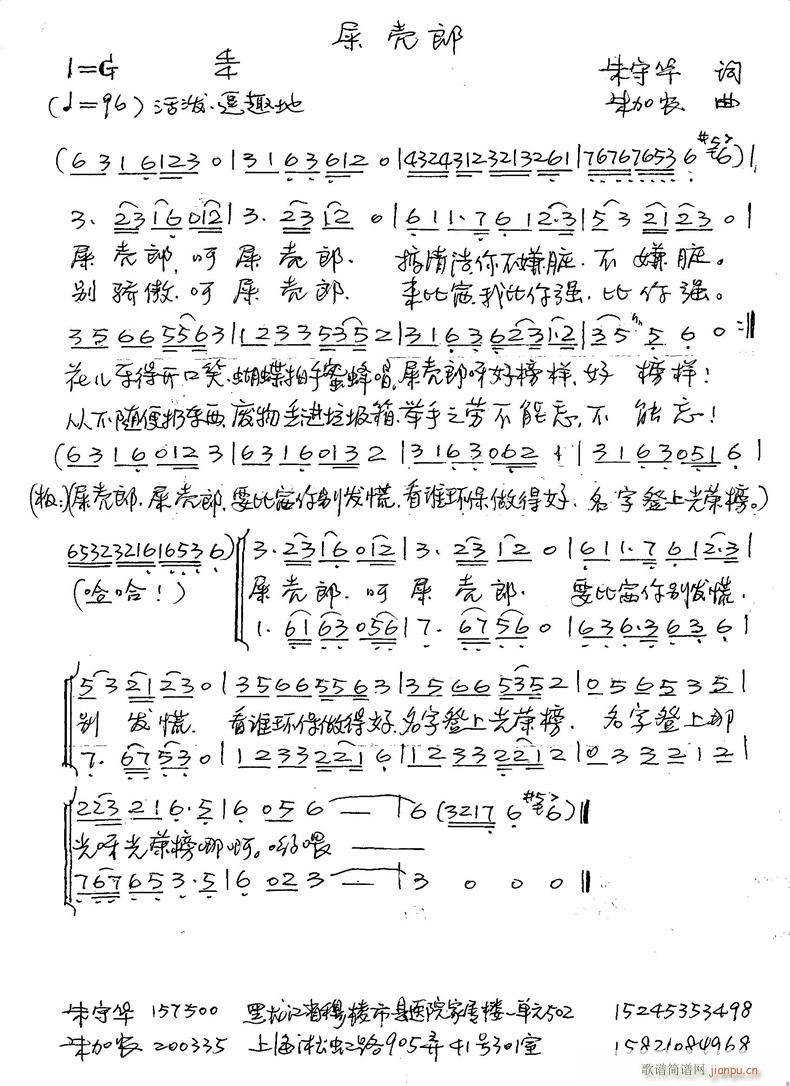 屎壳郎
1=G 4/4
朱守华 词
(♩=96) 活泼、逗趣地
朱加农 曲
(6 3 1 6 1 2 3 0 | 3 1 6 3 6 1 2 0 | 4324 3123 2132 61 | 7676 7653 6 6) |
3. 23 16 012 | 3. 23 12 0 | 6 1 1. 7 6 12.3 | 5 3 21 23 0 |
屎壳郎,呵屎壳郎. 掂清洁你不嫌脏.不嫌脏。
别骄傲.呵屎壳郎. 来比富我比你强.比你强。
3 5 6 6 5 5 6 3 | 1 2 3 3 5 3 5 2 | 3 1 6 3 6 2 3 1.2 | 3 5 5 6 0 :||
花儿乐得开口笑.蝴蝶拍手蜜蜂唱.屎壳郎呀好榜样.好榜样!
从不随便扔东西.废物丢进垃圾箱.举手之劳不能忘.不能忘!
(6 3 1 6 0 1 2 3 | 6 3 1 6 0 1 3 2 | 3 1 6 3 0 6 2 1 | 3 1 6 3 0 5 1 6 |
(板:)(屎壳郎.屎壳郎.要比富你别发慌.看谁环保做得好.名字登上光荣榜。)
6532 3216 1653 6) 3. 23 16 012 | 3. 23 12 0 | 6 1 1. 7 6 12.3 |
(哈哈!) 屎壳郎.呵屎壳郎. 要比富你别发慌.
1. 61 63 056 | 7. 67 56 0 | 6 3 6. 3 6 3 6 |
5 3 21 23 0 | 3 5 6 6 5 5 6 3 | 3 5 6 6 5 3 5 2 | 0 5 6 5 3 5 |
别发慌. 看谁环保做得好.名字登上光荣榜. 名字登上那
7. 67 53 0 | 1 2 3 3 2 2 1 6 | 1 2 3 3 2 2 1 2 | 0 3 3 2 1 2 |
2 2 3 2 1 6. 5 | 6 0 5 6 — | 6 (3217 6 6) ||
光呀光荣榜哪啊。哟喂 ——
7 6 7 6 5 3. 5 | 6 0 2 3 — | 3 0 0 0 ||
朱守华 157500 黑龙江省穆棱市县医院家属楼一单元502 15245353498
朱加农 200335 上海淞虹路905弄41号301室 15821084968
歌谱简谱网 jianpu.cn